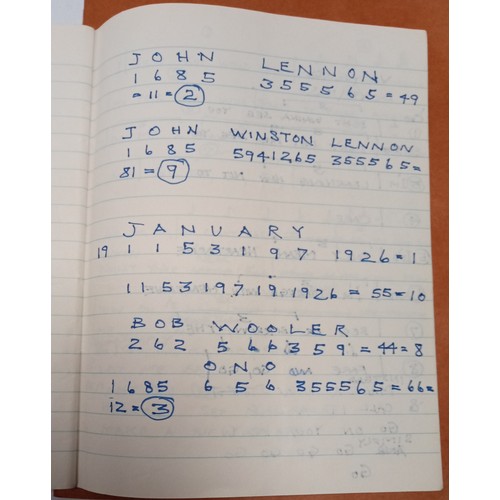 JOHN LENNON
1 6 8 5 3 5 5 5 6 5 = 49
= 11 = 2
JOHN WINSTON LENNON
1 6 8 5 5941265 355565 =
81 = 9
JANUARY
19 1 1 5 3 1 9 7 1926 = 1
1 1 5 3 1 9 7 1 9 1926 = 55 = 10
BOB WOOLER
2 6 2 5 6 6 3 5 9 = 44 = 8
ONO
1 6 8 5 6 5 6 355565 = 66 =
12 = 3